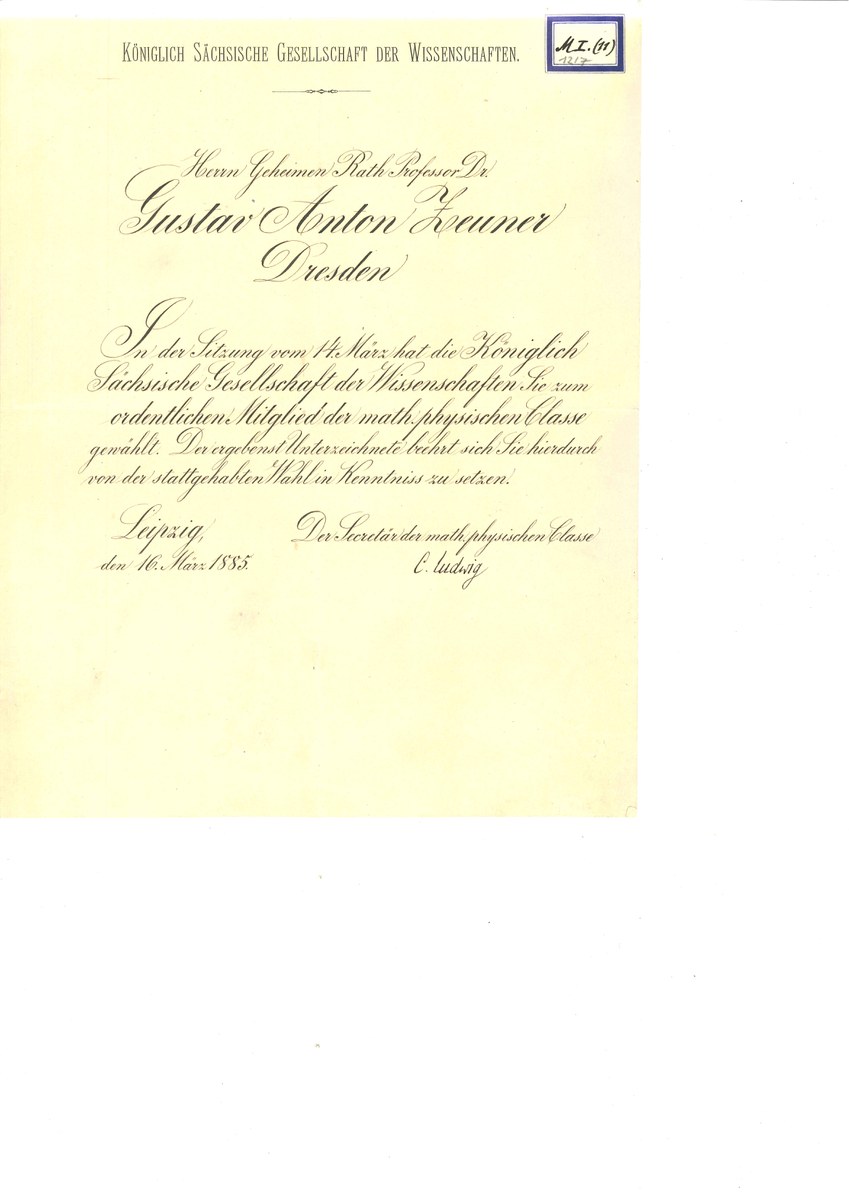 KÖNIGLICH SÄCHSISCHE GESELLSCHAFT DER WISSENSCHAFTEN.
M I. (11)
1217
Herrn Geheimen Rath Professor Dr.
Gustav Anton Zeuner
Dresden
In der Sitzung vom 14. März hat die Königlich
Sächsische Gesellschaft der Wissenschaften Sie zum
ordentlichen Mitglied der math. physischen Classe
gewählt. Der ergebenst Unterzeichnete beehrt sich Sie hierdurch
von der stattgehabten Wahl in Kenntniss zu setzen.
Leipzig,
den 16. März 1885.
Der Secretär der math. physischen Classe
C. Ludwig